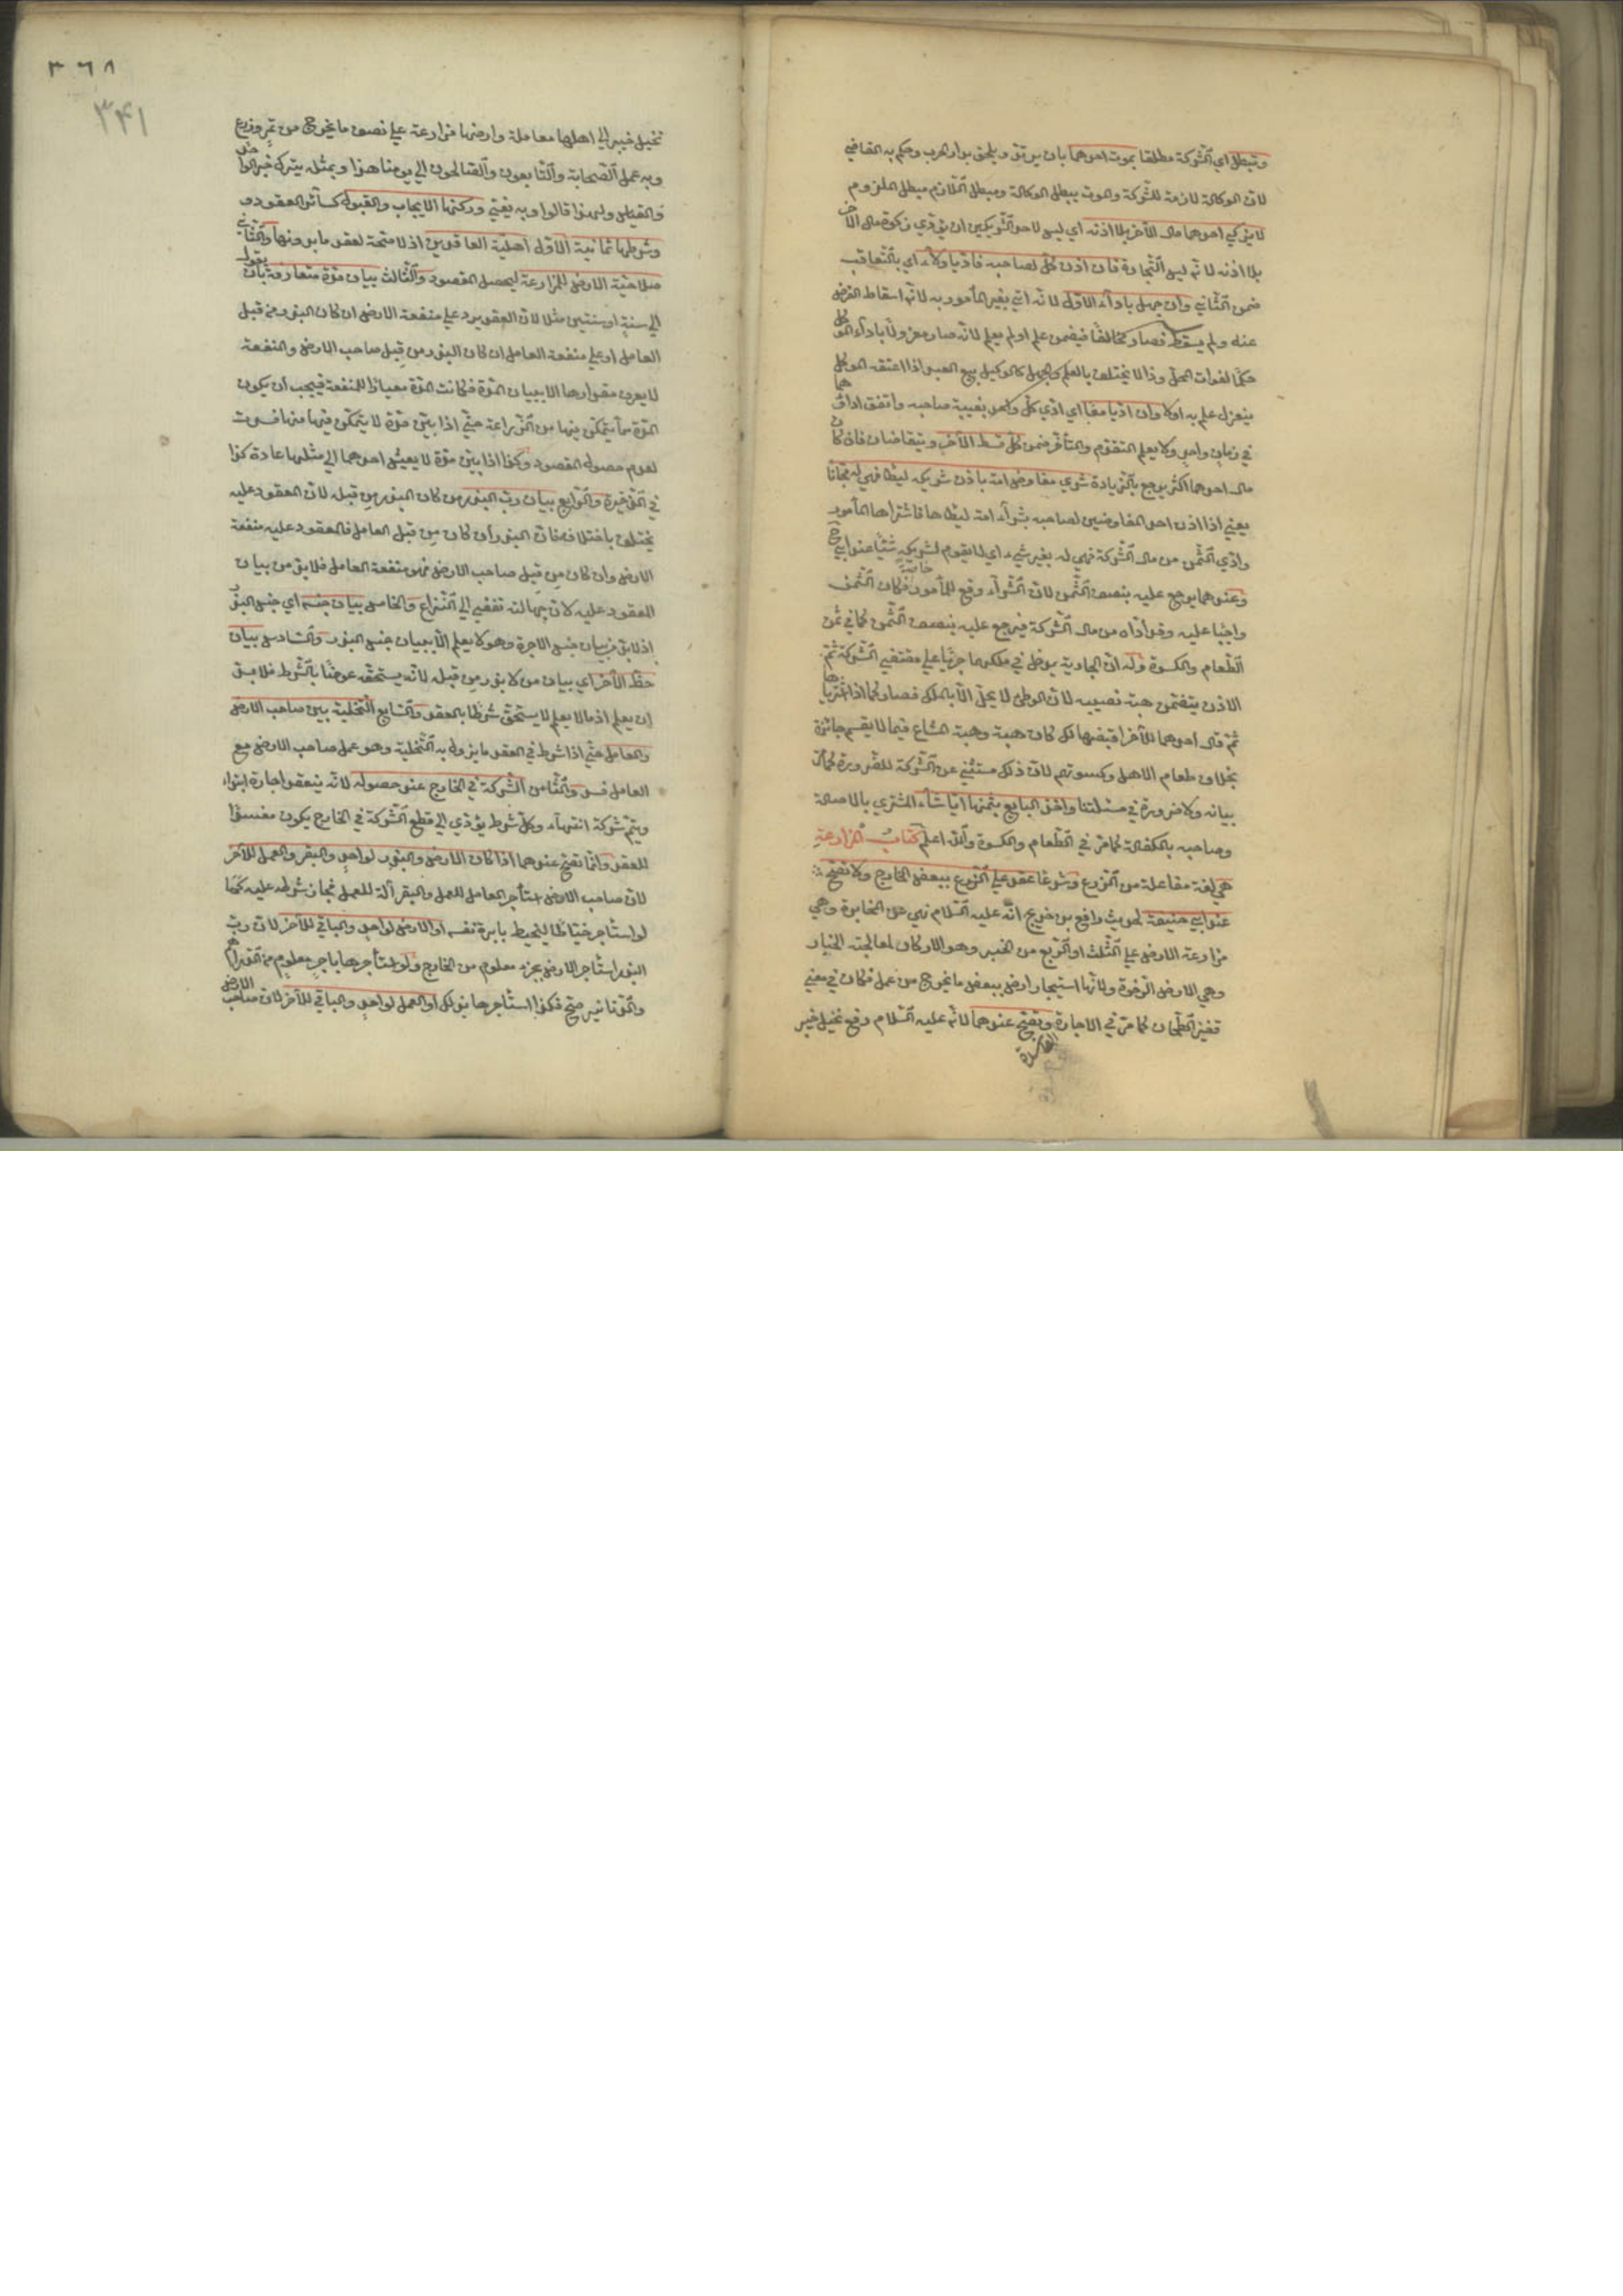 وتبطل اي الشركة مطلقا بموت احدهما بان يرتد ويلحق بدار الحرب وحكم به القاضي
لان الوكالة لازمة للشركة والموت يبطل الوكالة ومبطل اللازم مبطل الملزوم
لا يزكي احدهما مال الآخر بلا اذنه اي ليس لاحد الشريكين ان يؤدي زكوة مال الآخر
بلا اذنه لانه ليس التجارة فان اذن كل لصاحبه فاديا ولاء اي بالتعاقب
ضمن الثاني وان جهل باداء الاول لانه اتي بغير المأمور به لانه اسقاط الفرض
عنه ولم يسقط فصار مخالفا فيضمن علم او لم يعلم لانه صار معزولا باداء الموكل
حكما لفوات المحل وذا لا يختلف بالعلم والجهل كالوكيل ببيع العبد اذا اعتقه الموكل
ينعزل علم به اولا وان اديا معا اي ادي كل واحد بغيبة صاحبه واتفق اداؤهما
في زمان واحد ولا يعلم التقدم والتأخر ضمن كل قسط الآخر ويتقاضان فان كان
مال احدهما اكثر يرجع بالزيادة شري مفاوض امة باذن شريكه ليطأ فهي له مجانا
يعني اذا اذن احد المفاوضين لصاحبه بشراء امة ليطأها فاشتراها المأمور
وادي الثمن من مال الشركة فهي له بغير شيء اي لا يقوم لشريكه شيئا عند ابي ح
وعندهما يرجع عليه بنصف الثمن لان الشراء وقع للمأمور خاصة فكان الثمن
واجبا عليه وقد اداه من مال الشركة فيرجع عليه بنصف الثمن كما في ثمن
الطعام والكسوة وله ان الجارية يدخل في ملكهما جريا علي مقتضي الشركة ثم
الاذن يتضمن هبة نصيبه لان الوطئ لا يحل الا بالملك فصار كما اذا اشترياها
ثم قال احدهما للآخر اقبضها لك كان هبة وهبة المشاع فيما لا يقسم جائزة
بخلاف طعام الاهل وكسوتهم لان ذلك مستثني عن الشركة للضرورة كما مر
بيانه ولا ضرورة في مسئلتنا واخذ البايع بثمنها ايا شاء المشتري بالاصالة
وصاحبه بالكفالة كما مر في الطعام والكسوة والله اعلم كتاب المزارعة
هي لغة مفاعلة من الزرع وشرعا عقد علي الزرع ببعض الخارج ولا تصح
عند ابي حنيفة لحديث رافع بن خديج انه عليه السلام نهي عن المخابرة وهي
مزارعة الارض علي الثلث او الربع من الخبر وهو الاكار لمعالجته الخبار
وهي الارض الرخوة ولانها استيجار ارض ببعض ما يخرج من عمله فكان في معني
قفيز الطحان كما مر في الاجارة وتصح عندهما لانه عليه السلام دفع نخيل خيبر
الفاسدة
٣٦٨
٣٤١
نخيل خيبر الي اهلها معاملة وارضها مزارعة علي نصف ما يخرج من ثمر وزرع
وبه عمل الصحابة والتابعون والصالحون الي يومنا هذا وبمثله يترك خبر الواحد
والقياس ولهذا قالوا وبه يفتي وركنها الايجاب والقبول كسائر العقود و
وشرطها ثمانية الاول اهلية العاقدين اذ لا صحة لعقد ما بدونها والثاني
صلاحية الارض للمزارعة ليحصل المقصود والثالث بيان مدة متعارفة بان يقول
الي سنة او سنتين مثلا لان العقد يرد علي منفعة الارض ان كان البذر من قبل
العامل او علي منفعة العامل ان كان البذر من قبل صاحب الارض والمنفعة
لا يعرف مقدارها الا ببيان المدة فكانت المدة معيارا للمنفعة فيجب ان يكون
المدة مما يتمكن فيها من الزراعة حتي اذا بين مدة لا يتمكن فيها منها فسدت
لعدم حصول المقصود وكذا اذا بين مدة لا يعيش احدهما الي مثلها عادة كذا
في الذخيرة والرابع بيان رب البذر من كان البذر من قبله لان المعقود عليه
يختلف باختلافه فان البذر ان كان من قبل العامل فالمعقود عليه منفعة
الارض وان كان من قبل صاحب الارض فهو منفعة العامل فلا بد من بيان
المعقود عليه لان جهالته تفضي الي النزاع والخامس بيان جنسه اي جنس البذر
اذ لا بد من بيان جنس الاجرة وهو لا يعلم الا ببيان جنس البذر والسادس بيان
حظ الآخر اي بيان من لا بذر من قبله لانه يستحقه عوضا بالشرط فلا بد
ان يعلم اذ ما لا يعلم لا يستحق شرطا بالعقد والسابع التخلية بين صاحب الارض
والعامل حتي اذا شرط في العقد ما يزول به التخلية وهو عمل صاحب الارض مع
العامل فسد والثامن الشركة في الخارج عند حصوله لانه ينعقد اجارة ابتداء
ويتم شركة انتهاء وكل شرط يؤدي الي قطع الشركة في الخارج يكون مفسدا
للعقد وانما تصح عندهما اذا كان الارض والبذر لواحد والبقر والعمل للآخر
لان صاحب الارض استأجر العامل للعمل والبقر آلة للعمل فجاز شرطه عليه كما
لو استأجر خياطا ليخيط بابرة نفسه او الارض لواحد والباقي للآخر لان رب
البذر استأجر الارض بجزء معلوم من الخارج ولو استأجرها باجر معلوم من الدراهم
والدنانير صح فكذا استأجرها بذلك او العمل لواحد والباقي للآخر لان صاحب الارض